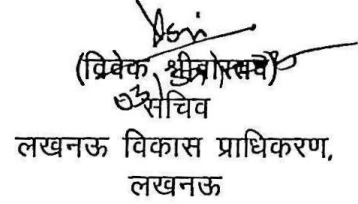 (विवेक श्रीवास्तव)
सचिव
लखनऊ विकास प्राधिकरण,
लखनऊ